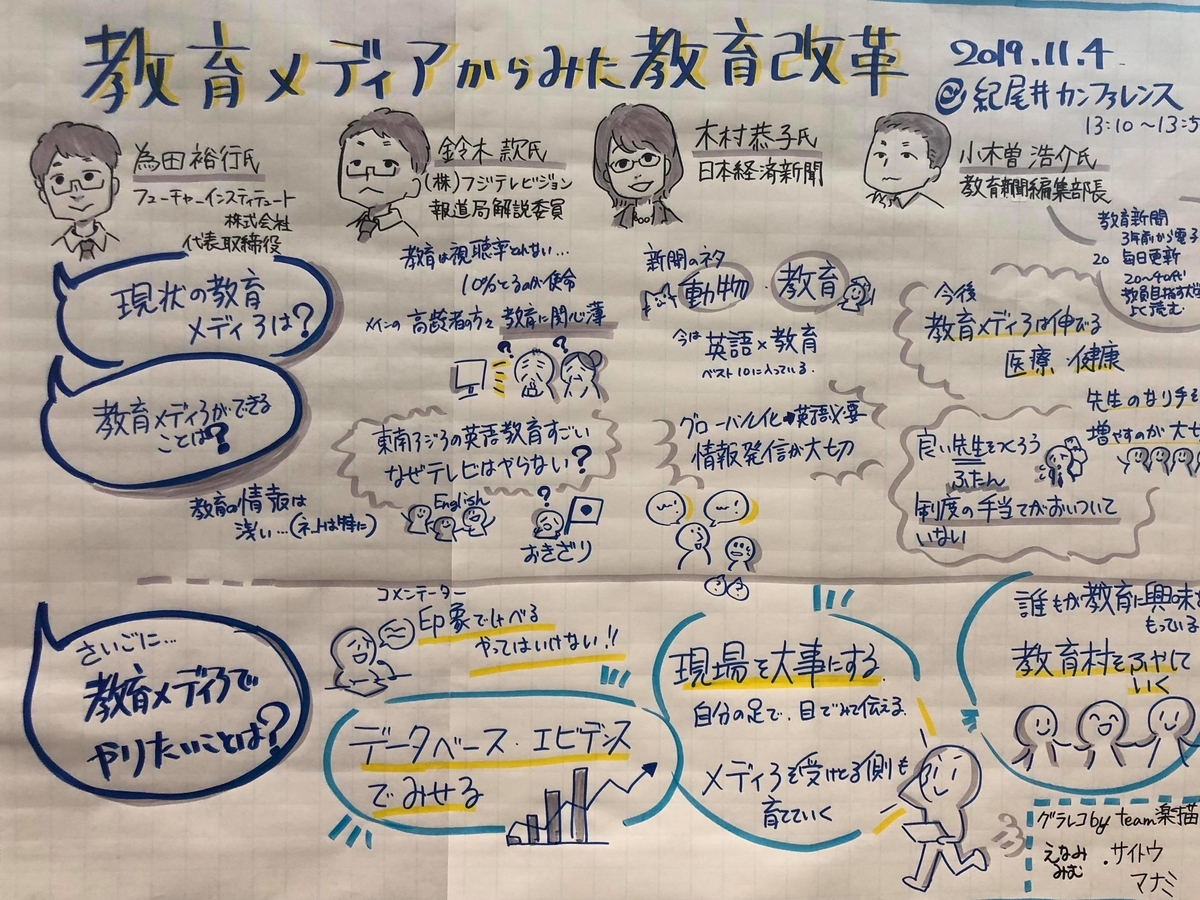 教育メディアからみた教育改革
2019.11.4
@紀尾井カンファレンス
13:10～13:5
為田裕行氏
フューチャーインスティテュート
株式会社
代表取締役
鈴木款氏
(株)フジテレビジョン
報道局解説委員
木村恭子氏
日本経済新聞
小木曽浩介氏
教育新聞編集部長
教育新聞
3年前から電子
20 毎日更新
20～40代
教員目指す
に読む
現状の教育
メディアは?
教育は視聴率とれない…
10%とるのが使命
メインの高齢者の方々 教育に関心薄
新聞のネタ
動物・教育
今は 英語×教育
ベスト10に入っている.
今後
教育メディアは伸びる
医療・健康
教育メディアができる
ことは?
教育の情報は
浅い…(ネットは特に)
東南アジアの英語教育すごい
なぜテレビはやらない?
English
おきざり
グローバル化→英語必要
情報発信が大切
先生のなり手を
増やすのが大切
良い先生をつくろう
ふたん
制度の手当てがおいついて
いない
さいごに…
教育メディアで
やりたいことは?
コメンテーター
印象でしゃべる
やってはいけない!!
データベース・エビデンス
でみせる
現場を大事にする
自分の足で、目でみて伝える.
メディアを受けとる側も
育てていく
誰もが教育に興味を
もっている
教育村をふやして
いく
グラレコby team楽描
えなみ
みむ
・サイトウ
マナミ